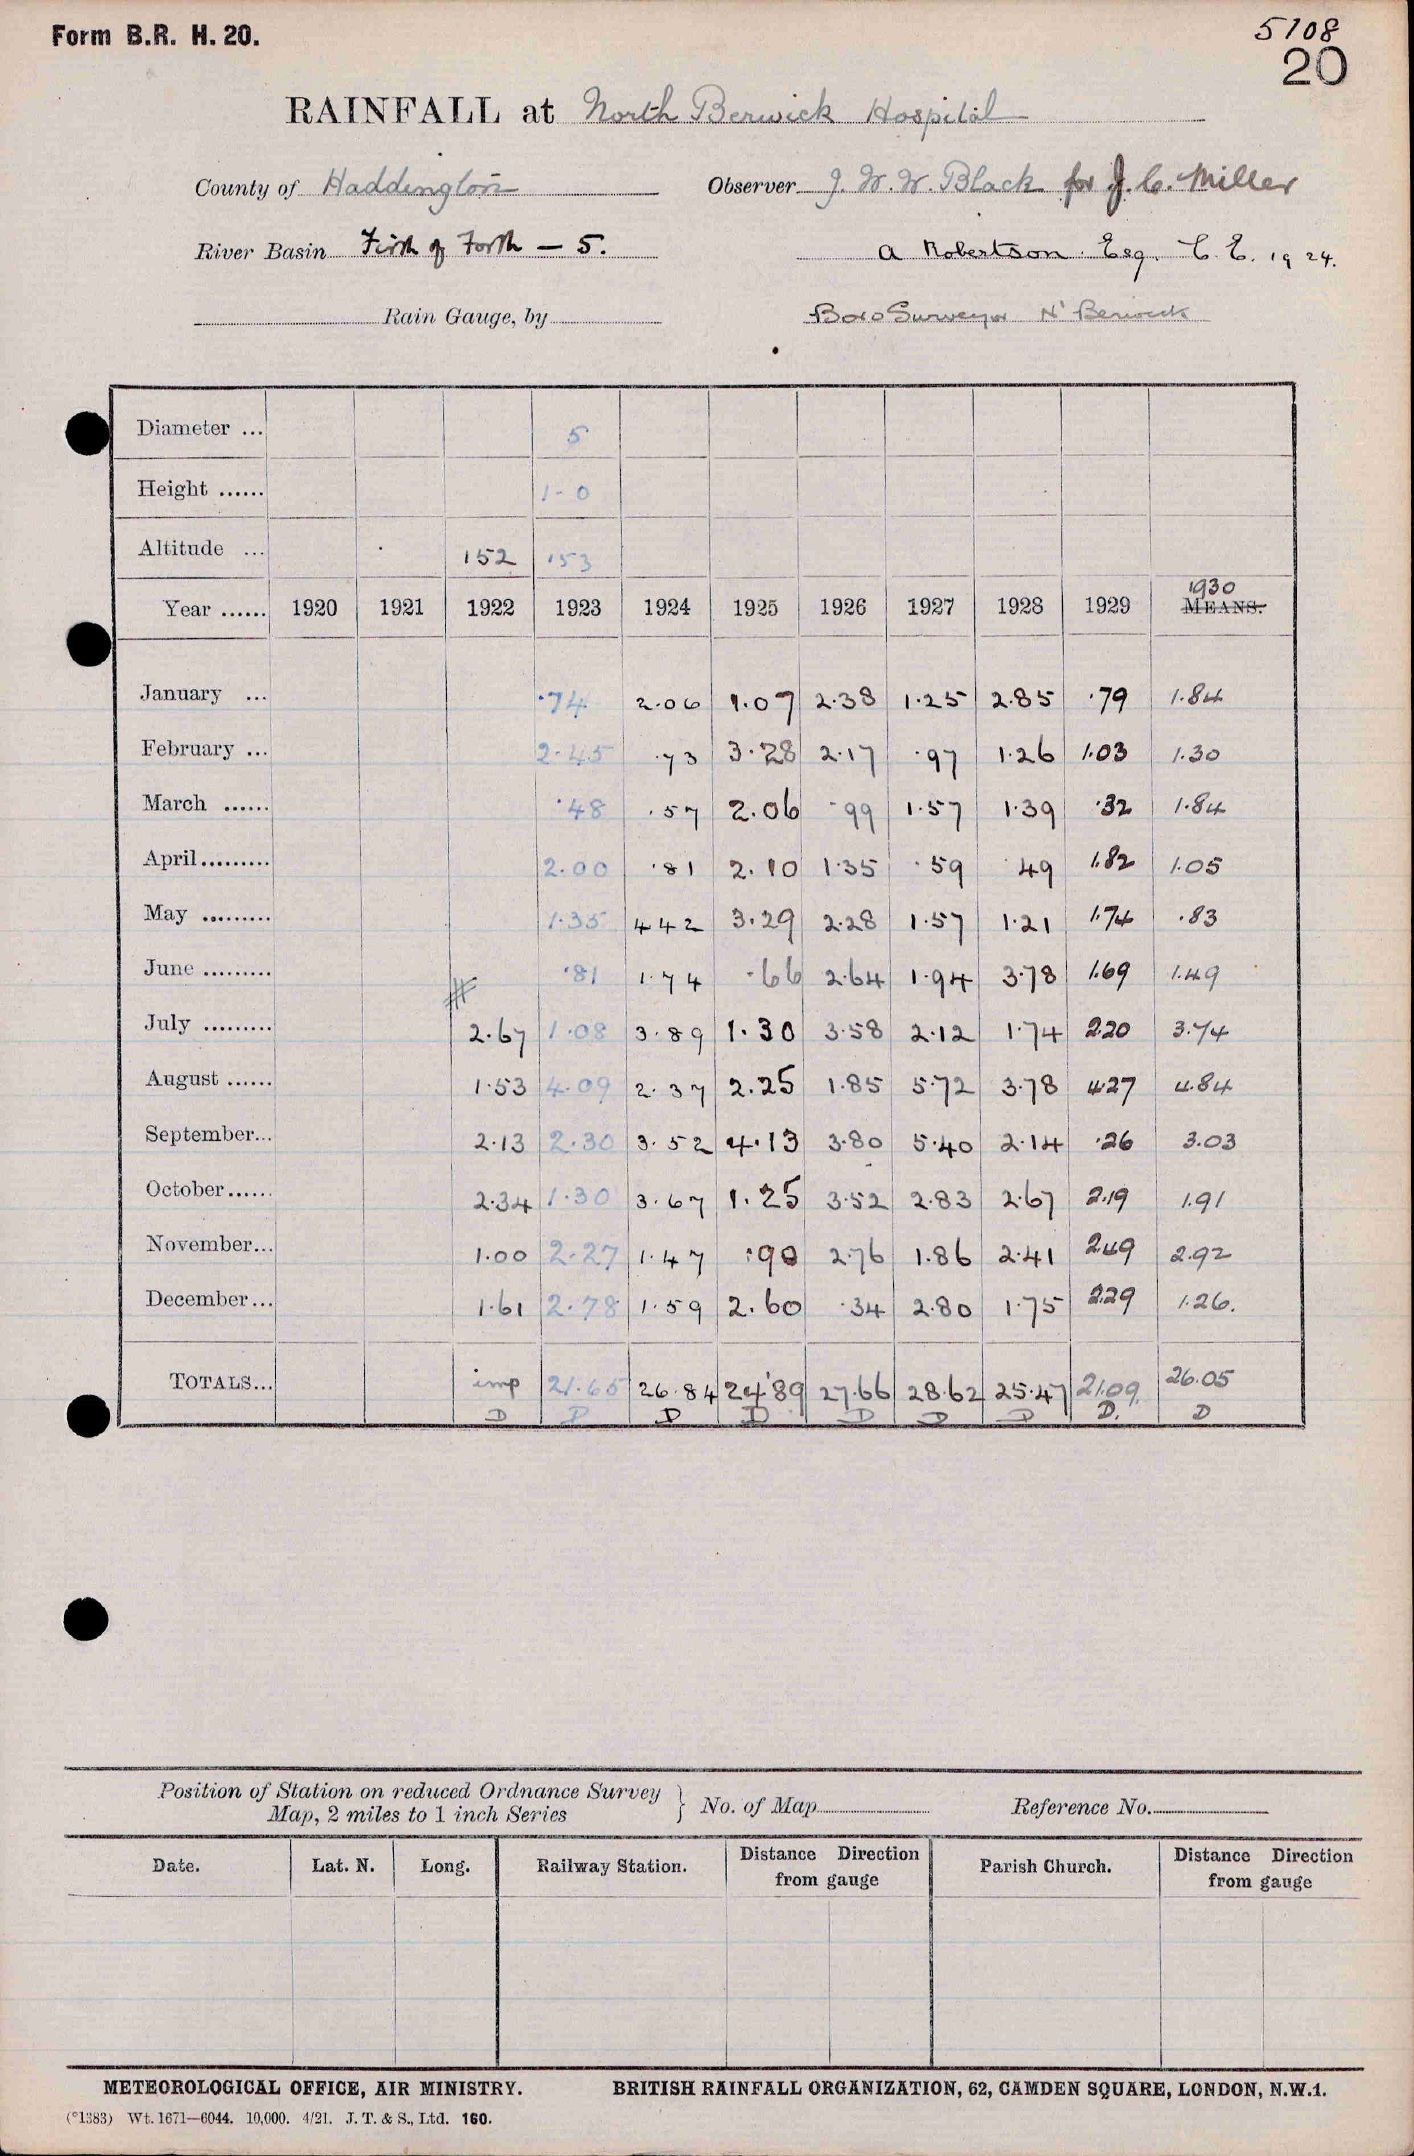 Form B.R. H. 20.
5108
20
RAINFALL at North Berwick Hospital
County of Haddington Observer J. W. W. Black for J. C. Miller
River Basin Firth of Forth — 5. A Robertson. Esq. C. E. 1924.
Rain Gauge, by Boro Surveyor N' Berwick
Diameter ... 5
Height ...... 1-0
Altitude ... 152 153
1930
Year ...... 1920 1921 1922 1923 1924 1925 1926 1927 1928 1929 MEANS.
January ... ·74 2.06 1.07 2.38 1.25 2.85 ·79 1.84
February ... 2.45 .73 3.28 2.17 .97 1.26 1.03 1.30
March ...... ·48 .57 2.06 .99 1.57 1.39 ·32 1.84
April......... 2.00 ·81 2.10 1.35 .59 .49 1.82 1.05
May ......... 1.35 4 42 3.29 2.28 1.57 1.21 1.74 .83
June ......... ·81 1.74 .66 2.64 1.94 3.78 1.69 1.49
July ......... 2.67 1.08 3.89 1.30 3.58 2.12 1.74 2.20 3.74
August ...... 1.53 4.09 2.37 2.25 1.85 5.72 3.78 4.27 4.84
September... 2.13 2.30 3.52 4.13 3.80 5.40 2.14 ·26 3.03
October...... 2.34 1.30 3.67 1.25 3.52 2.83 2.67 2.19 1.91
November... 1.00 2.27 1.47 .90 2.76 1.86 2.41 2.49 2.92
December... 1.61 2.78 1.59 2.60 .34 2.80 1.75 2.29 1.26.
TOTALS... imp 21.65 26.84 24.89 27.66 28.62 25.47 21.09 26.05
D D D D D D D D. D
Position of Station on reduced Ordnance Survey
Map, 2 miles to 1 inch Series } No. of Map Reference No.
Date. Lat. N. Long. Railway Station. Distance Direction from gauge Parish Church. Distance Direction from gauge
METEOROLOGICAL OFFICE, AIR MINISTRY. BRITISH RAINFALL ORGANIZATION, 62, CAMDEN SQUARE, LONDON, N.W.1.
(°1383) Wt. 1671—6044. 10,000. 4/21. J. T. & S., Ltd. 160.